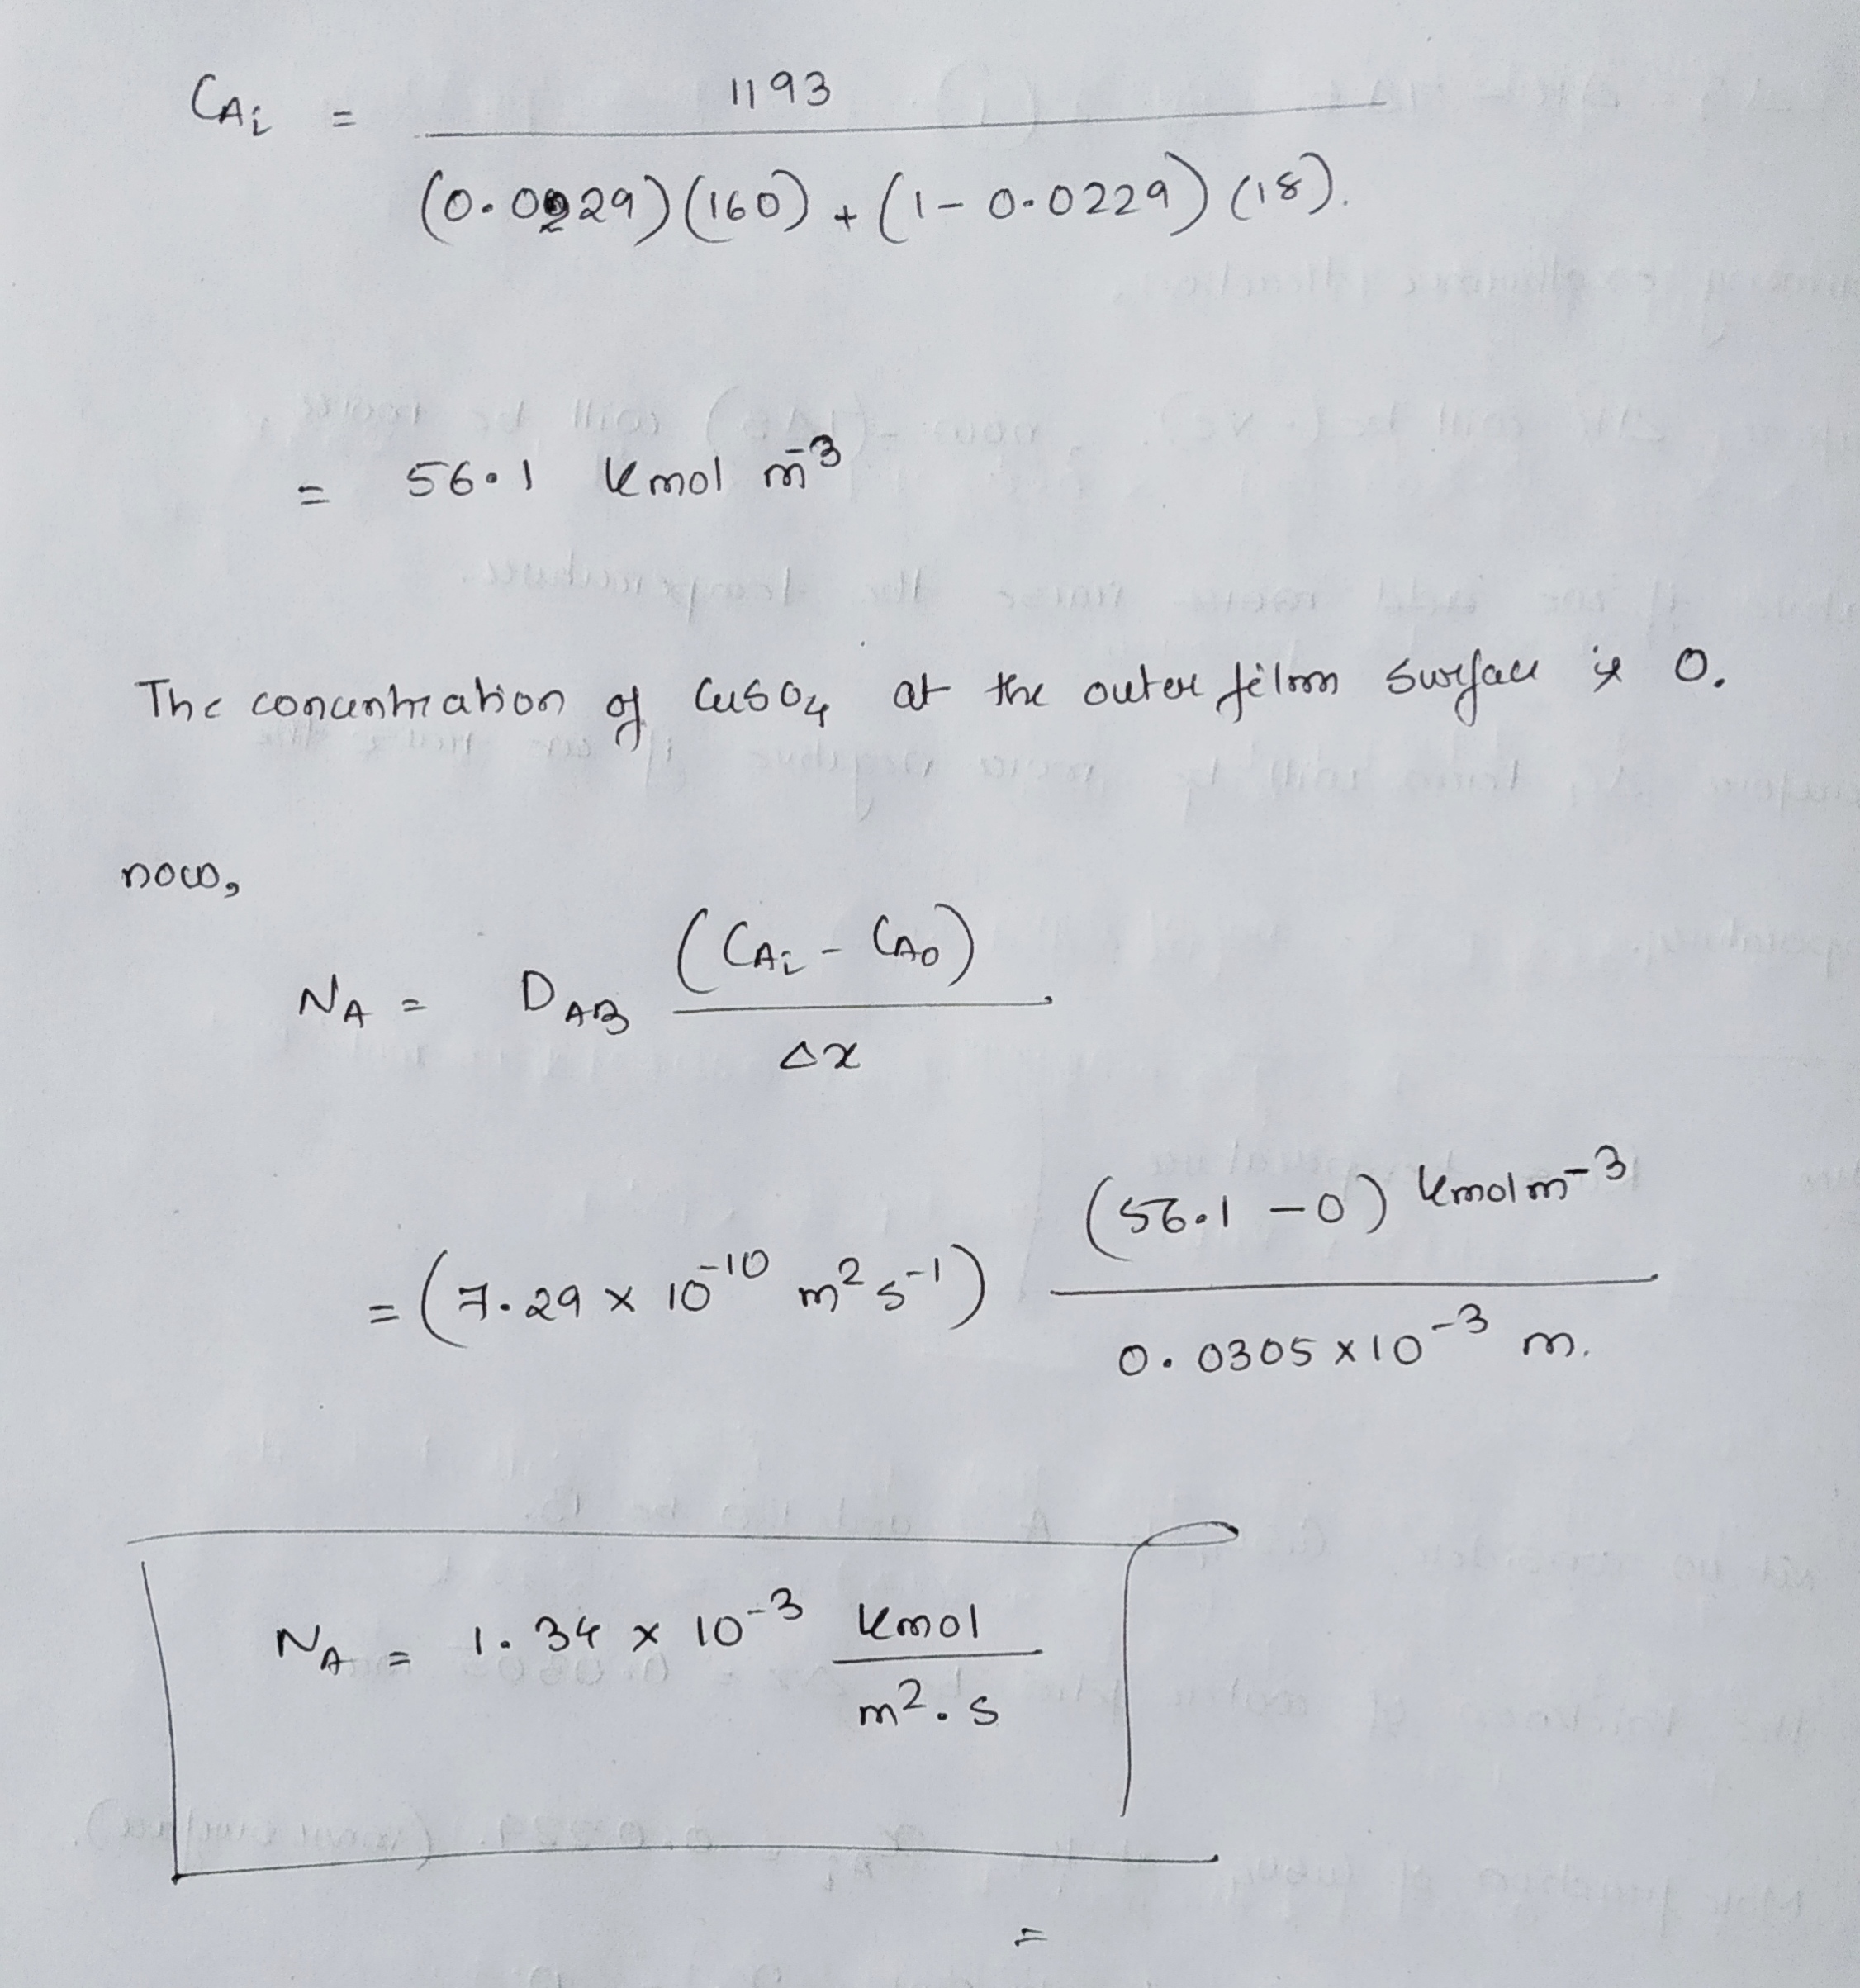 C_Ai = 1193 / (0.0229)(160) + (1 - 0.0229)(18).
= 56.1 kmol m^-3
The concentration of CuSO4 at the outer film surface is 0.
now,
N_A = D_AB (C_Ai - C_A0) / Δx
= (7.29 x 10^-10 m^2 s^-1) (56.1 - 0) kmol m^-3 / 0.0305 x 10^-3 m.
N_A = 1.34 x 10^-3 kmol / m^2 . s
=